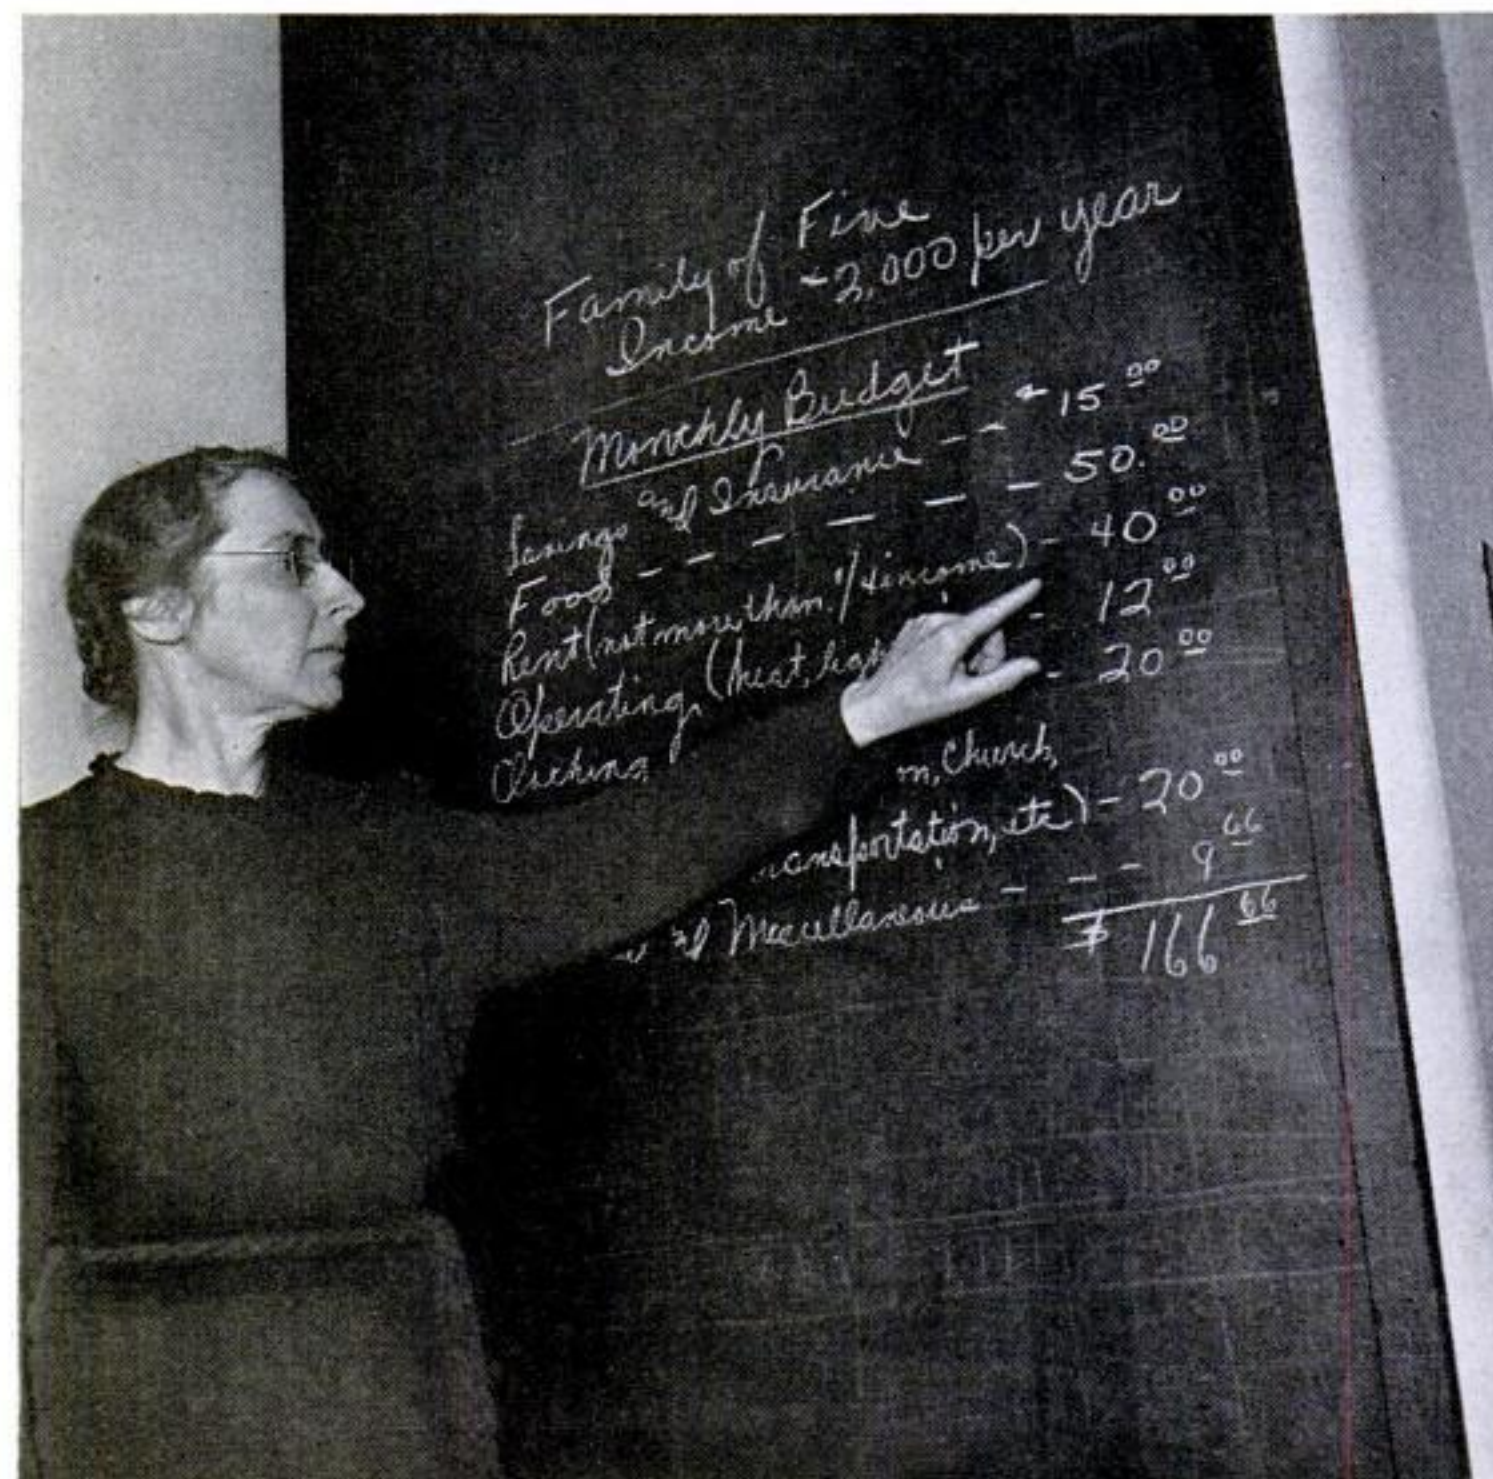 Family of Five
Income - 2,000 per year
Monthly Budget
Savings and Insurance - - - 15 00
Food - - - - - - 50. 00
Rent (not more than 1/4 income) - 40 00
Operating (heat, - 12 00
- 20 00
Church,
etc) - 20 00
and Miscellaneous - - - 9 66
$ 166 66